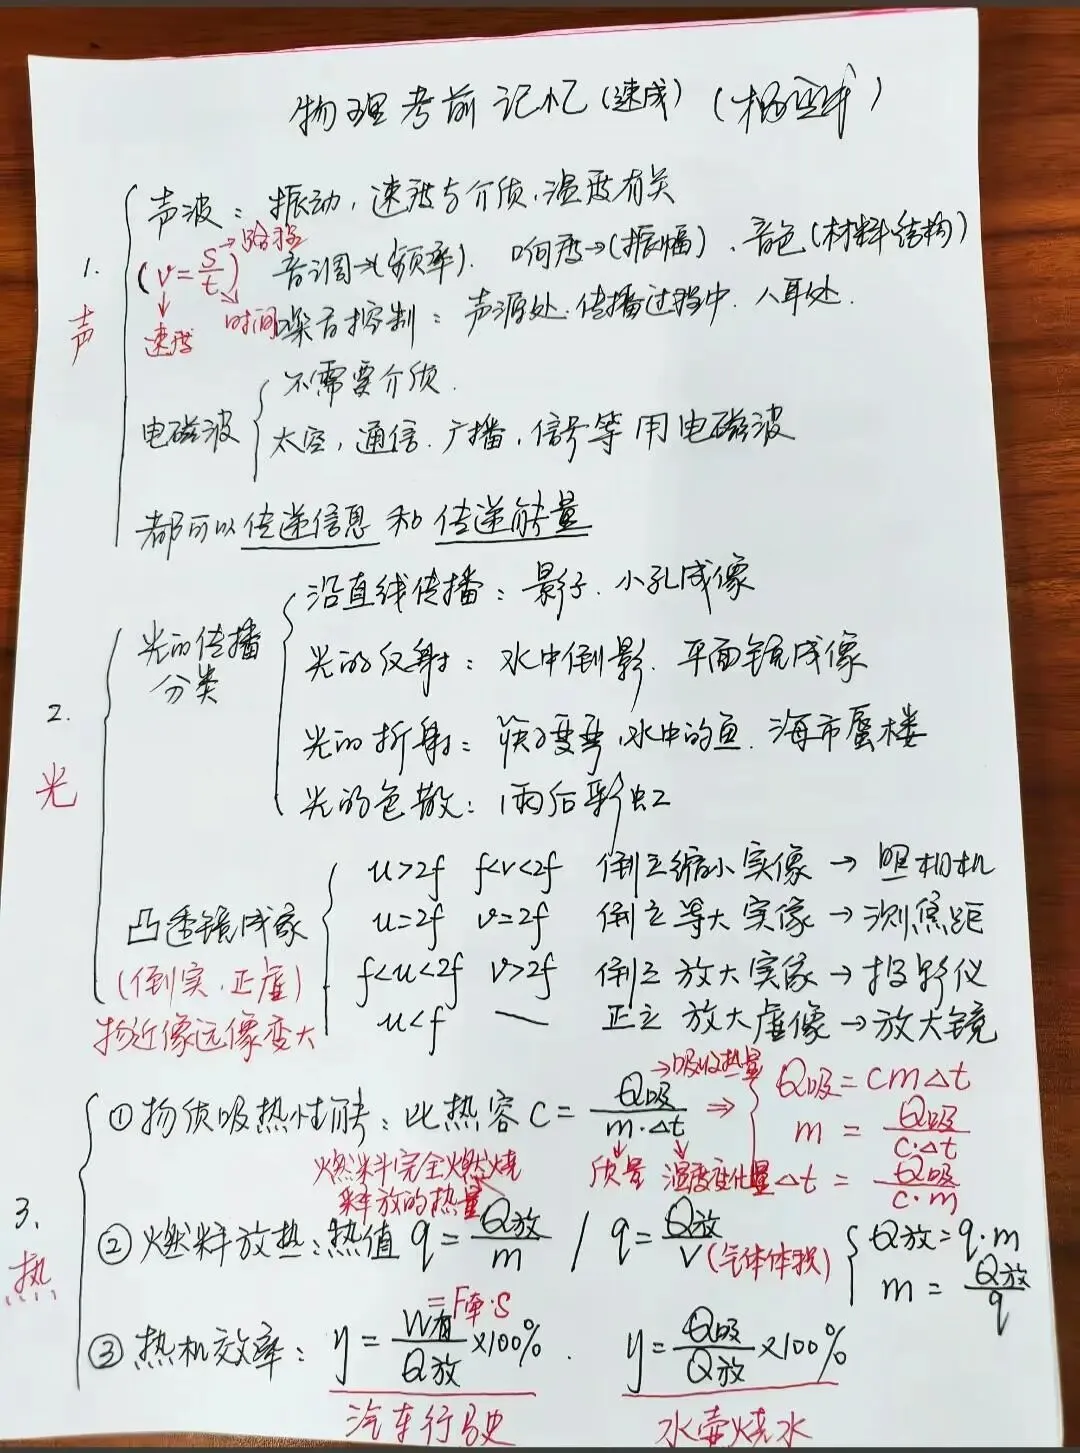 物理考前记忆(速成)
声波：振动，速度与介质、温度有关
1.
声
(v=s/t) →路程
↓ 速度
↘ 时间
音调→(频率)、响度→(振幅)、音色(材料结构)
噪音控制：声源处、传播过程中、人耳处.
电磁波
不需要介质.
太空，通信.广播，信号等 用电磁波
都可以传递信息 和 传递能量
2.
光
光的传播
分类
沿直线传播：影子、小孔成像
光的反射：水中倒影、平面镜成像
光的折射：筷子变弯，水中的鱼、海市蜃楼
光的色散：雨后彩虹
凸透镜成象
(倒实、正虚)
物近像远像变大
u>2f f<v<2f 倒立缩小实像→照相机
u=2f v=2f 倒立等大实像→测焦距
f<u<2f v>2f 倒立放大实像→投影仪
u<f — 正立放大虚像→放大镜
3.
热
①物质吸热性能：比热容 C=Q吸/m·Δt ⇒
→吸收热量
↓质量 ↓温度变化量
Q吸=cmΔt
m=Q吸/c·Δt
Δt=Q吸/c·m
燃料完全燃烧
释放的热量
②燃料放热：热值 q=Q放/m / q=Q放/V(气体体积)
Q放=q·m
m=Q放/q
=F牵·S
③热机效率：y=W有/Q放×100%. y=Q吸/Q放×100%
汽车行驶 水壶烧水